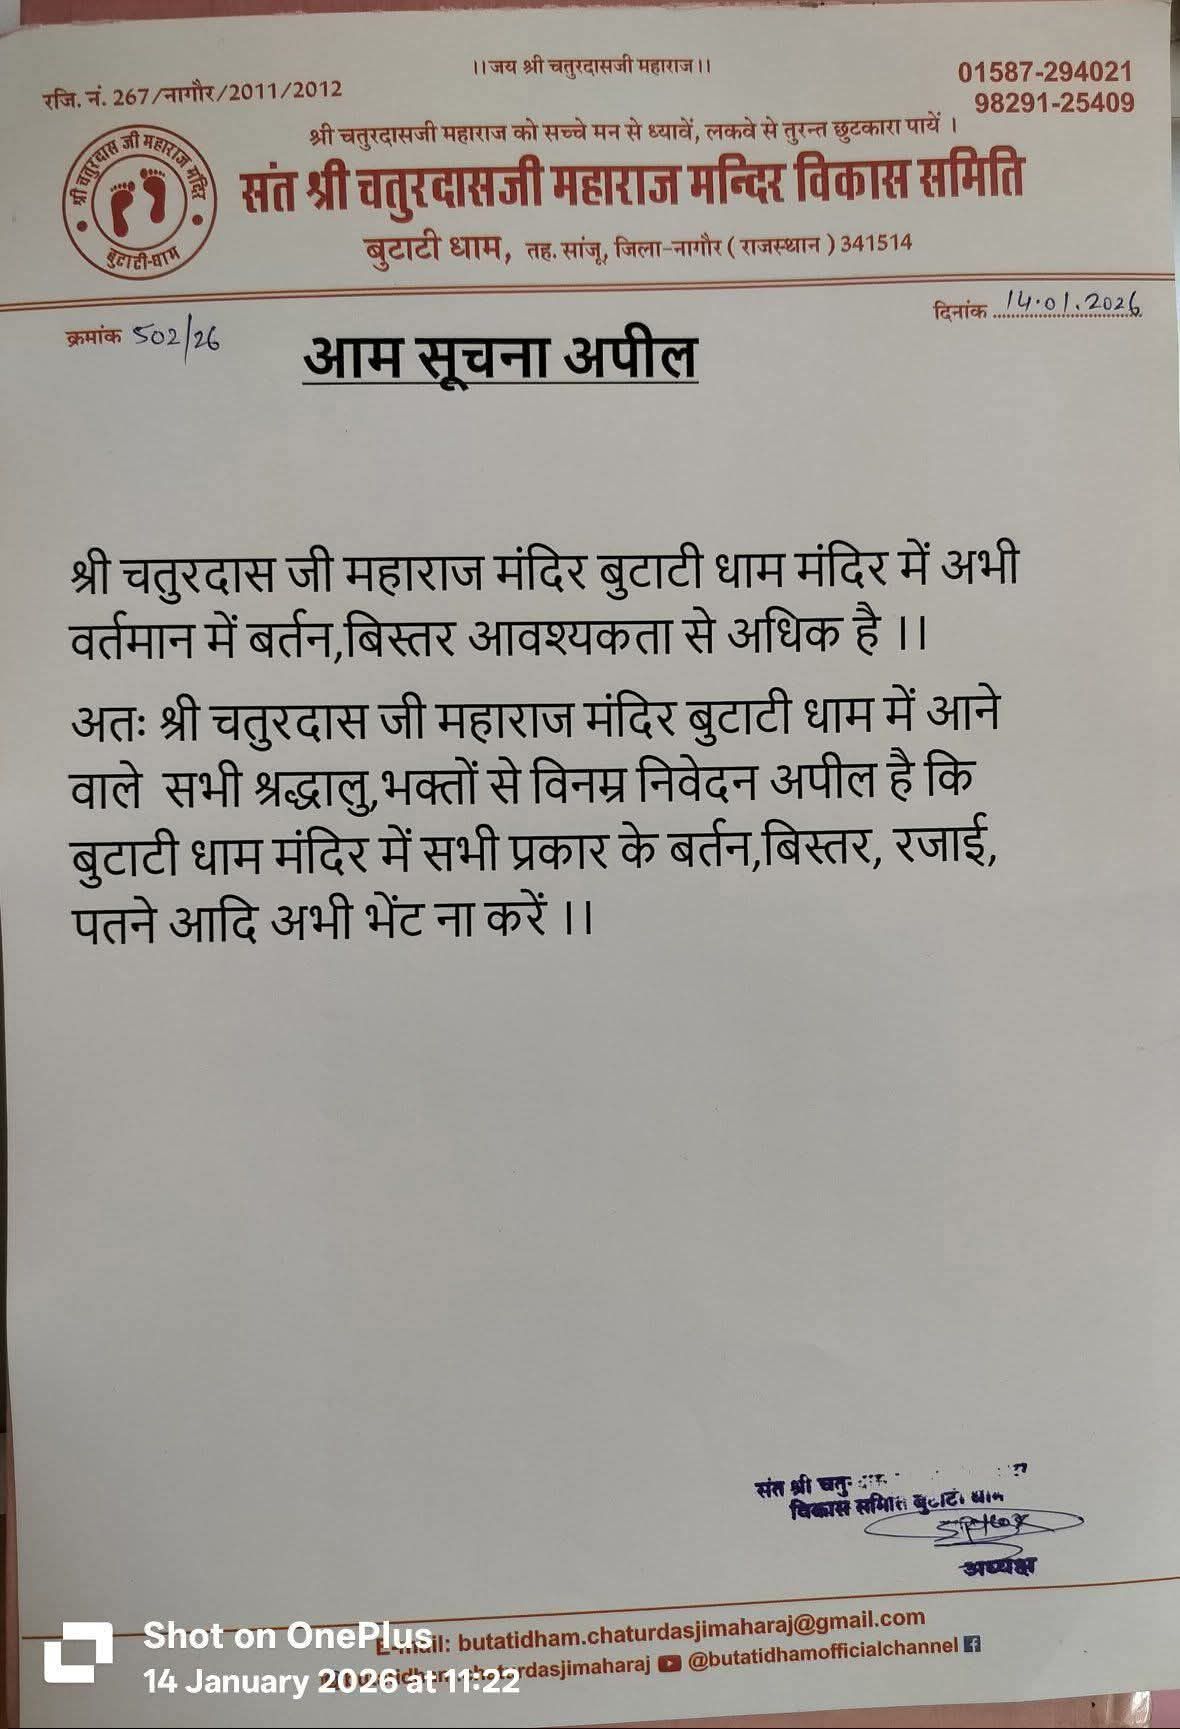 ।।जय श्री चतुरदासजी महाराज।।
रजि. नं. 267/नागौर/2011/2012
01587-294021
98291-25409
श्री चतुरदासजी महाराज को सच्चे मन से ध्यावें, लकवे से तुरन्त छुटकारा पायें ।
श्री चतुरदास जी महाराज मंदिर
बुटाटी-धाम
संत श्री चतुरदासजी महाराज मन्दिर विकास समिति
बुटाटी धाम, तह. सांजू, जिला-नागौर ( राजस्थान ) 341514
क्रमांक 502/26
दिनांक 14.01.2026
आम सूचना अपील
श्री चतुरदास जी महाराज मंदिर बुटाटी धाम मंदिर में अभी
वर्तमान में बर्तन,बिस्तर आवश्यकता से अधिक है ।।
अतः श्री चतुरदास जी महाराज मंदिर बुटाटी धाम में आने
वाले सभी श्रद्धालु,भक्तों से विनम्र निवेदन अपील है कि
बुटाटी धाम मंदिर में सभी प्रकार के बर्तन,बिस्तर, रजाई,
पतने आदि अभी भेंट ना करें ।।
संत श्री
विकास समिति बुटाटी धाम
अध्यक्ष
E-mail: butatidham.chaturdasjimaharaj@gmail.com
@butatidhamofficialchannel
Shot on OnePlus
14 January 2026 at 11:22